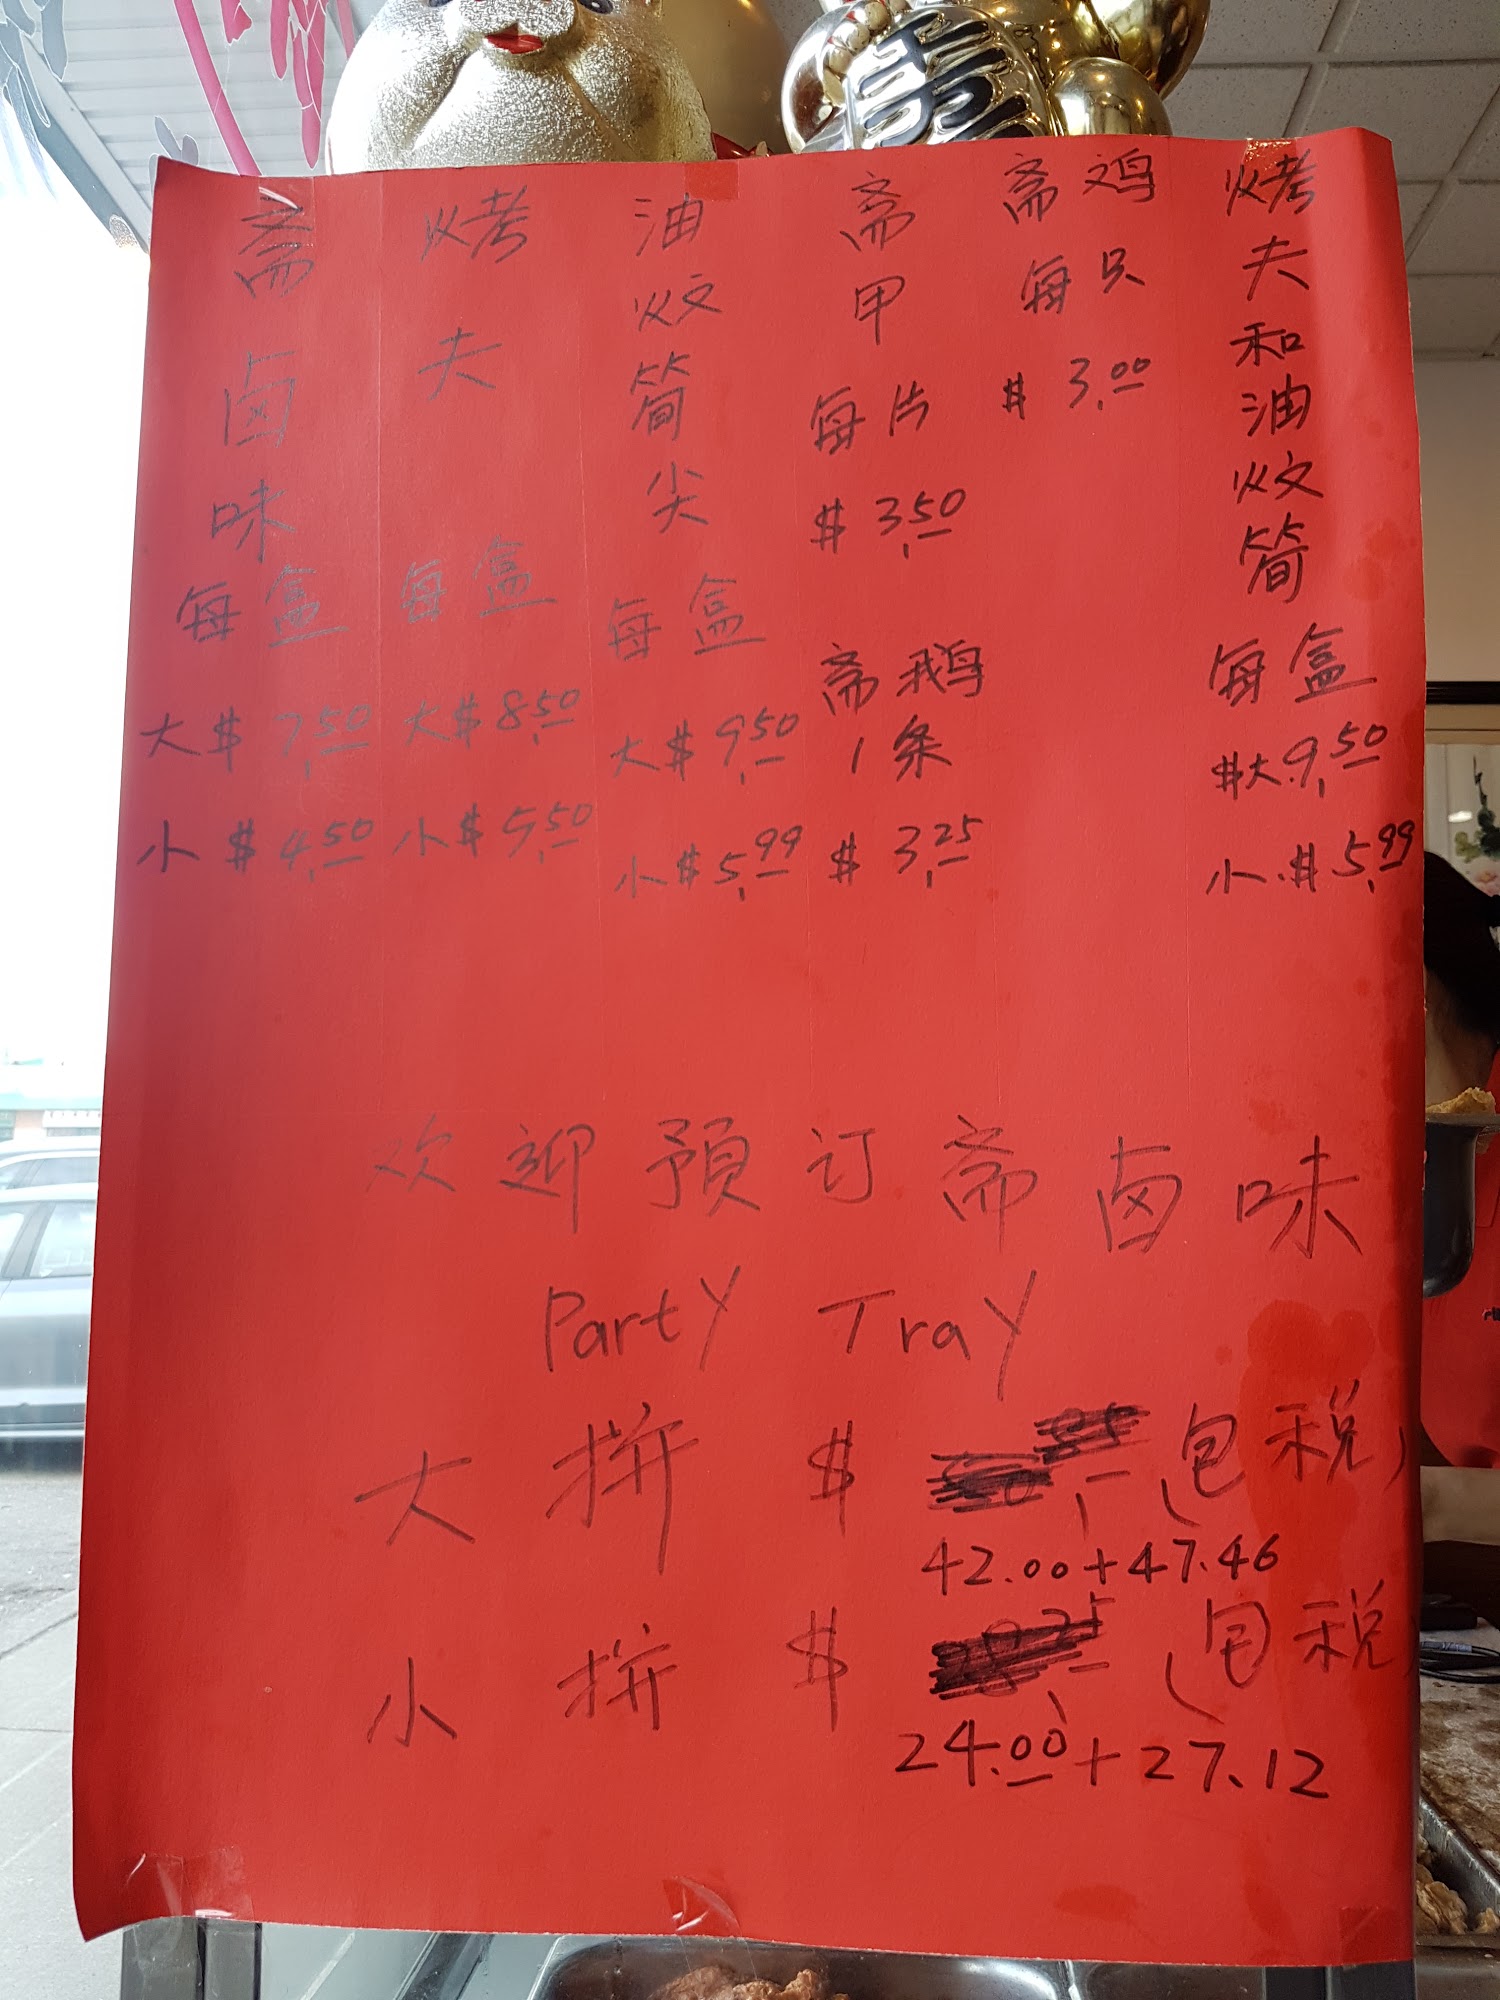 斋卤味
每盒
大$7.50
小$4.50
烤夫
每盒
大$8.50
小$5.50
油炆筒尖
每盒
大$9.50
小$5.99
斋甲
每片
$3.50
斋鹅
1条
$3.25
斋鸡
每只
$3.00
烤夫和油炆筒
每盒
$大.9.50
小.$5.99
欢迎预订斋卤味
Party Tray
大拼 $ (包税)
42.00+47.46
小拼 $ (包税)
24.00+27.12